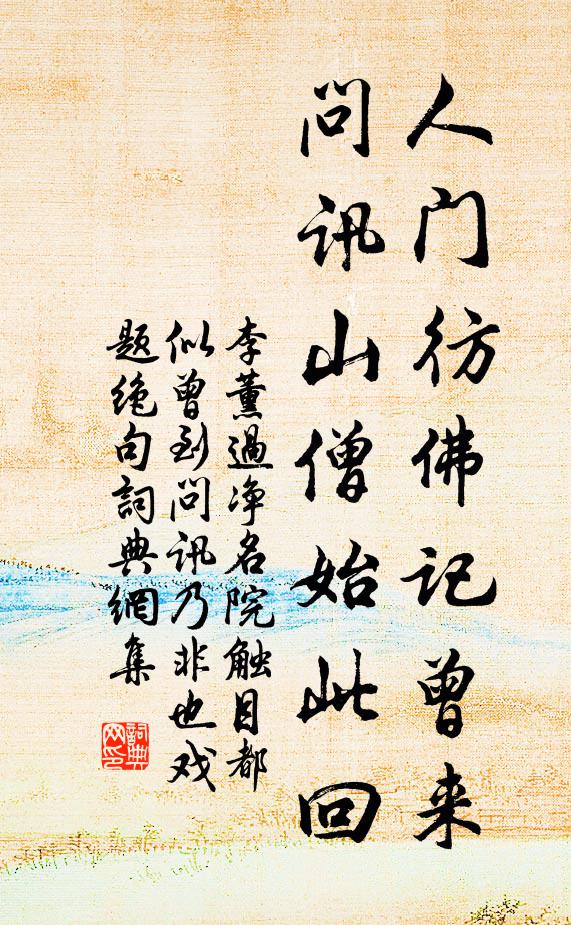 人门彷佛记曾来
问讯山僧始此回
李薰過净名院触目都
似曾到问讯乃非也戏
题绝句詞典網集
詞典
网印